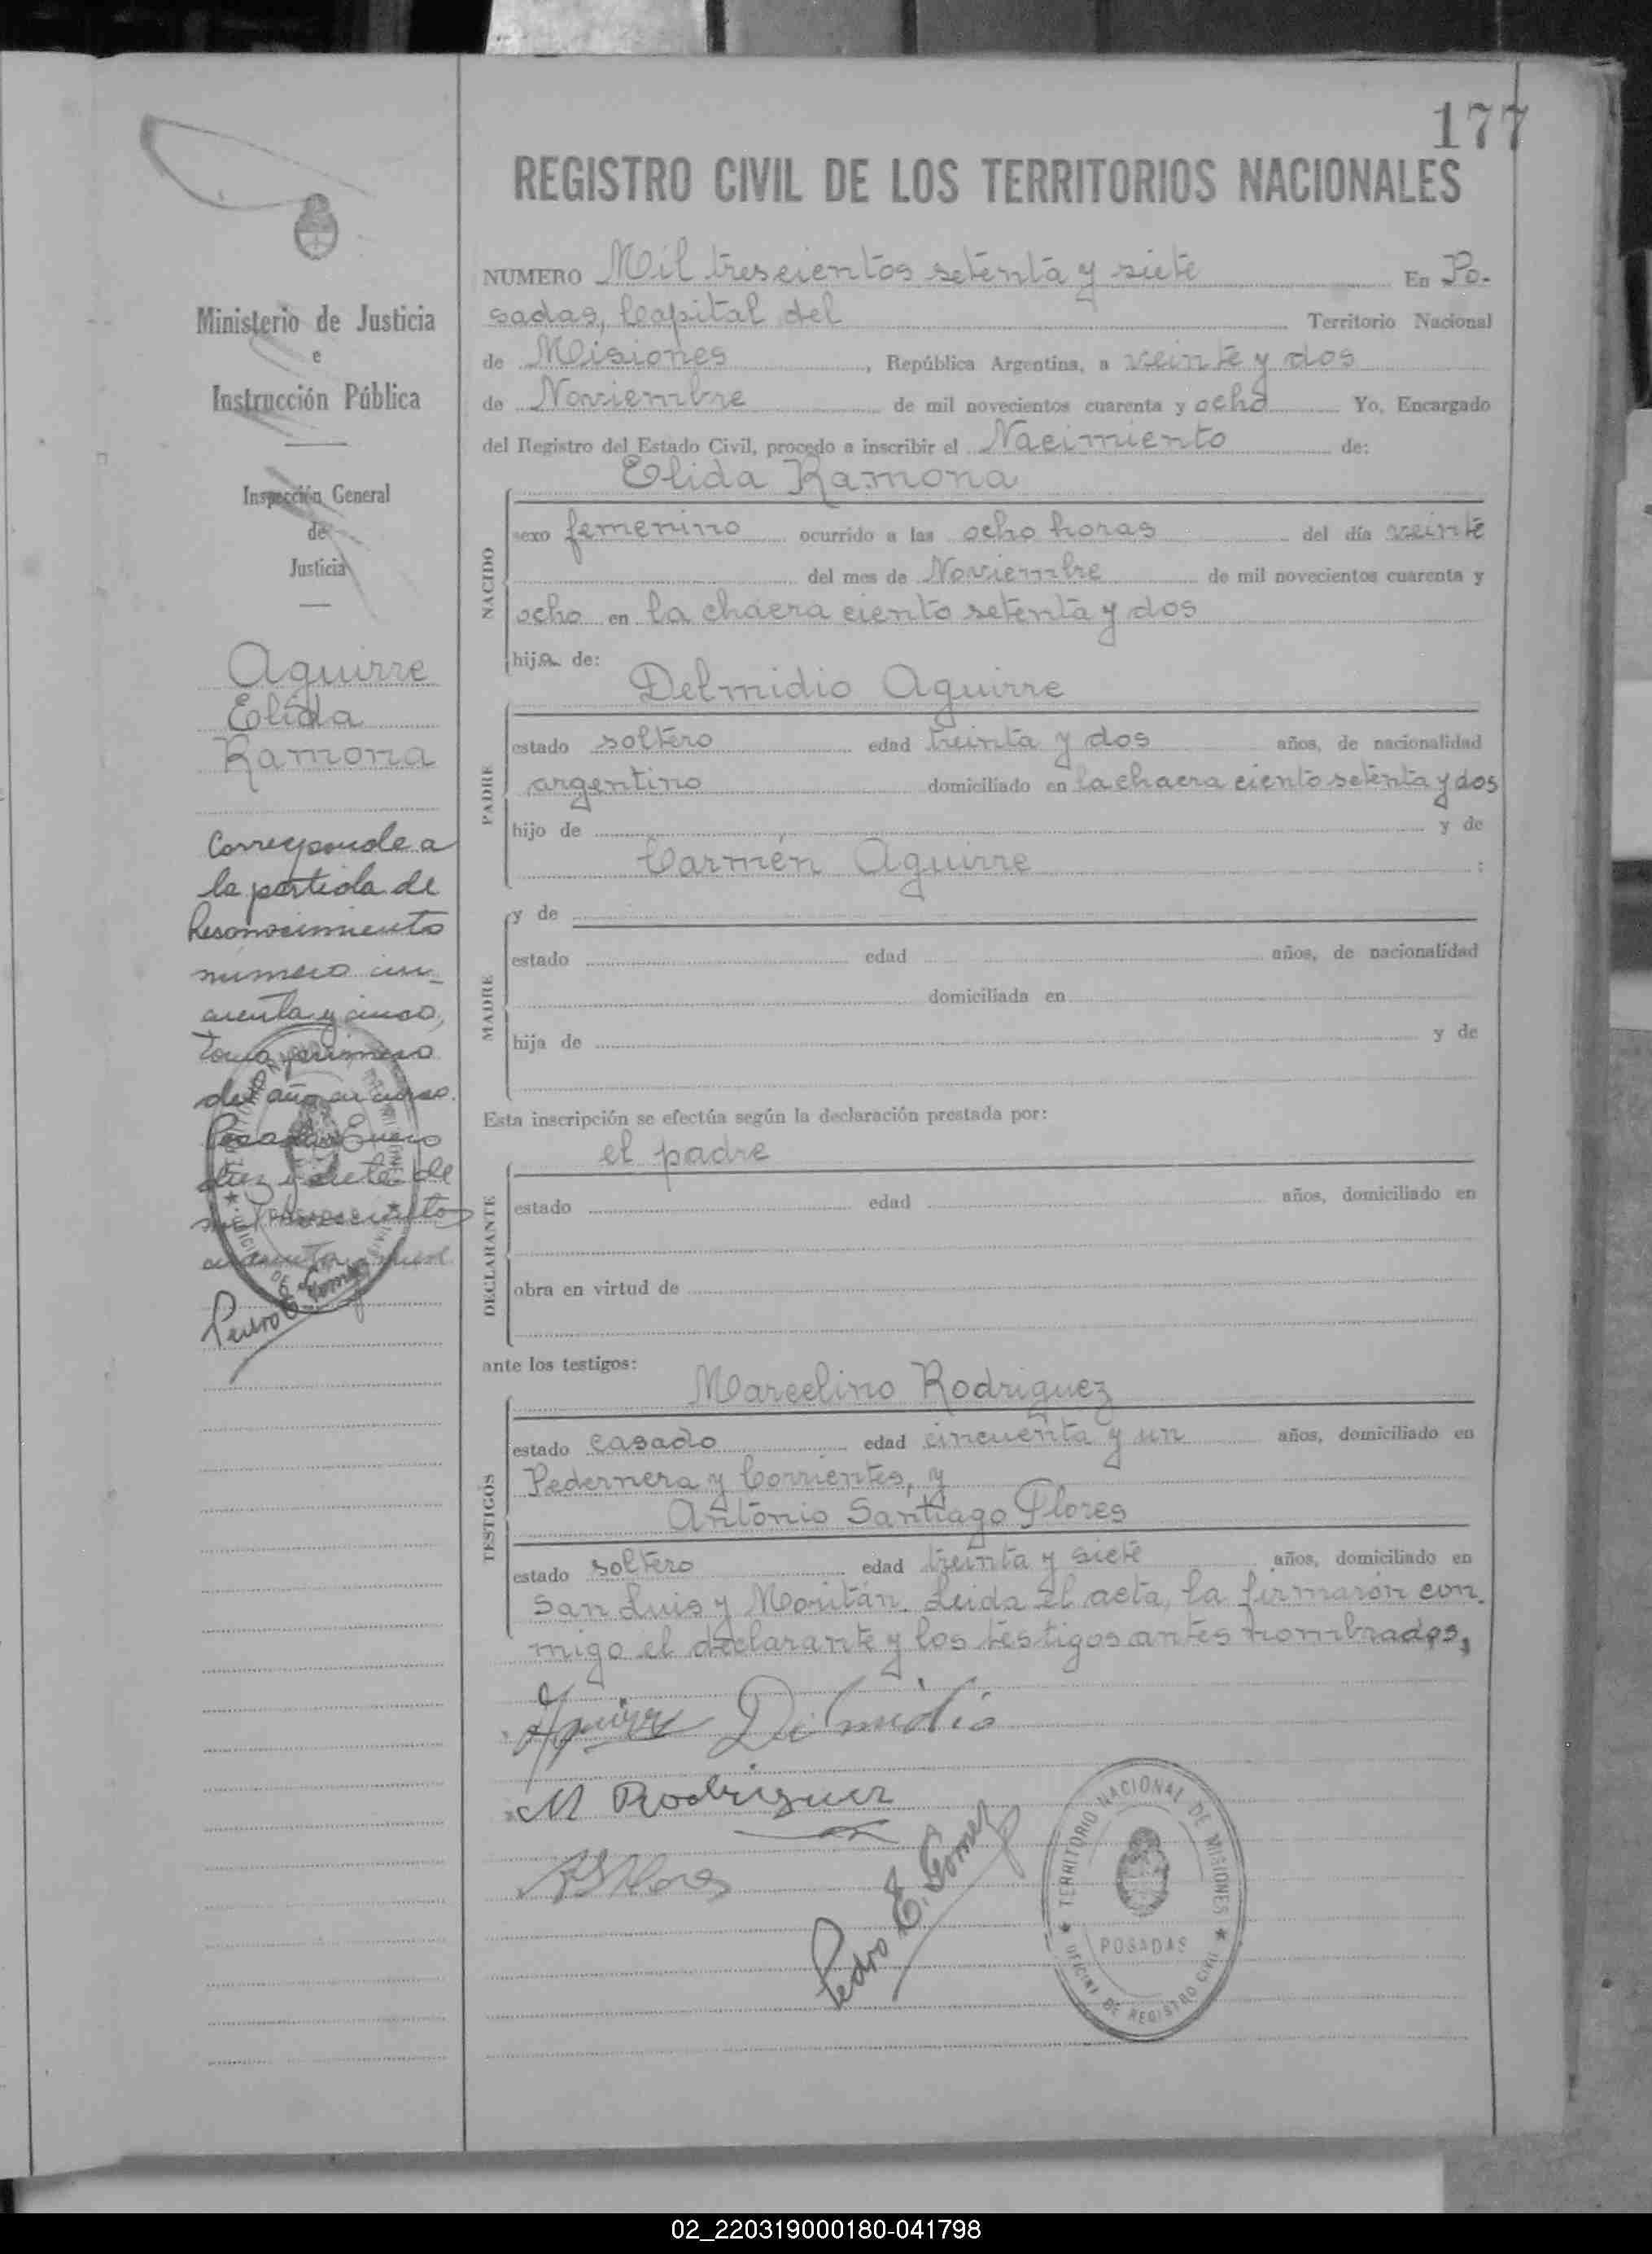 177
REGISTRO CIVIL DE LOS TERRITORIOS NACIONALES
Ministerio de Justicia
e
Instrucción Pública
Inspección General
de
Justicia
Aguirre
Elida
Ramona
Corresponde a
la partida de
Reconocimiento
número cin-
cuenta y cinco,
tomo primero
del año en curso.
Posadas, Enero
diez y siete de
mil novecientos
cuarenta y nueve
Pedro E. Gomez
NUMERO Mil trescientos setenta y siete En Po-
sadas, Capital del Territorio Nacional
de Misiones, República Argentina, a veinte y dos
de Noviembre de mil novecientos cuarenta y ocho Yo, Encargado
del Registro del Estado Civil, procedo a inscribir el Nacimiento de:
Elida Ramona
NACIDO
sexo femenino ocurrido a las ocho horas del día veinte
del mes de Noviembre de mil novecientos cuarenta y
ocho en la chacra ciento setenta y dos
hija de:
Delmidio Aguirre
PADRE
estado soltero edad treinta y dos años, de nacionalidad
argentino domiciliado en la chacra ciento setenta y dos
hijo de y de
Carmén Aguirre :
y de
MADRE
estado edad años, de nacionalidad
domiciliada en
hija de y de
Esta inscripción se efectúa según la declaración prestada por:
el padre
DECLARANTE
estado edad años, domiciliado en
obra en virtud de
ante los testigos:
Marcelino Rodriguez
TESTIGOS
estado casado edad cincuenta y un años, domiciliado en
Pedernera y Corrientes, y
Antonio Santiago Flores
estado soltero edad treinta y siete años, domiciliado en
San Luis y Moritán. Leida el acta, la firmaron con-
migo el declarante y los testigos antes nombrados,
Aguirre Delmidio
M Rodriguez
A S Flores
Pedro E. Gomez
TERRITORIO NACIONAL DE MISIONES
POSADAS
OFICINA DE REGISTRO CIVIL
02_220319000180-041798